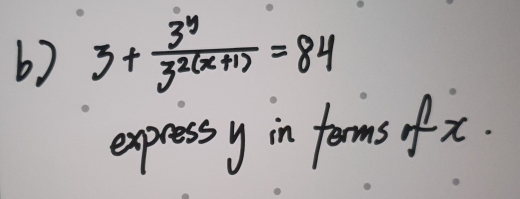 b) 3 + 3^y / 3^2(x+1) = 84
express y in terms of x.